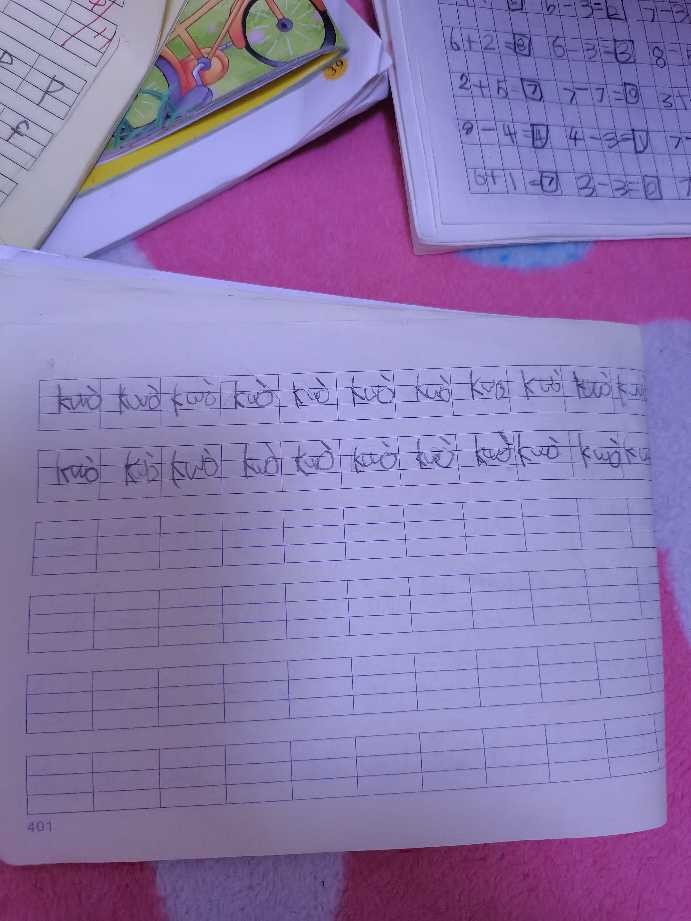 p
f
39
6+2=8 6-3=3 8
2+5=7 7-7=0 3+
9-4= 4-3=1 7-
6+1=7 3-3=0
kuò kuò kuò kuò kuò kuò kuò kuò kuò kuò
kuò kuò kuò kuò kuò kuò kuò kuò kuò kuò
401